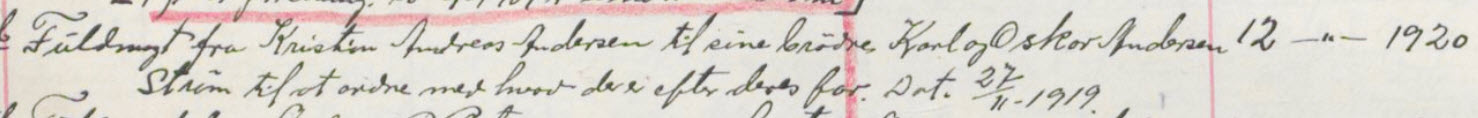 Fuldmagt fra Kristian Andreas Andersen til sine brödre Karl og Oskar Andersen 12 —"— 1920
Ström til at ordne med hvad der er efter deres far. Dat. 27/11-1919.